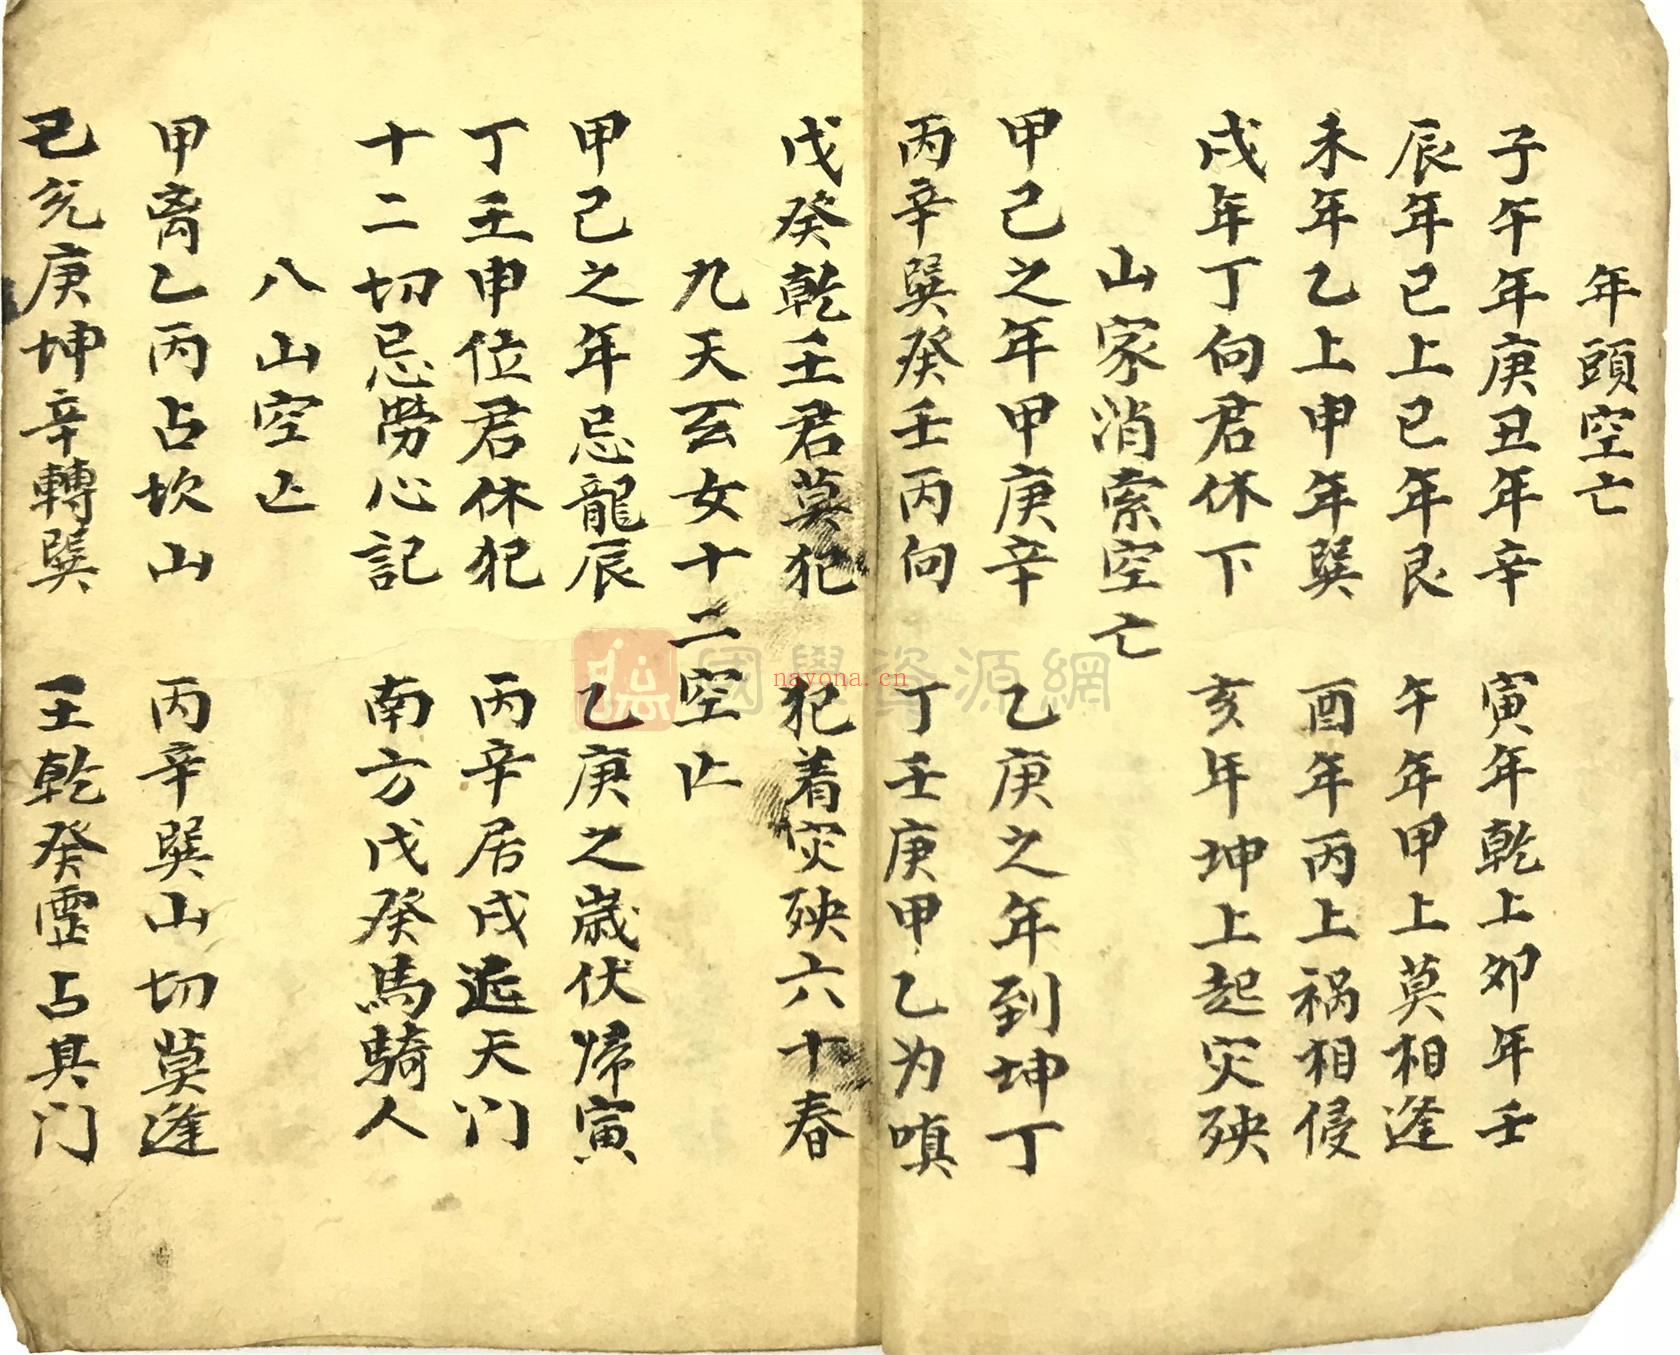 年頭空亡
子午年庚丑年辛 寅年乾上卯年壬
辰年巳上巳年艮 午年甲上莫相逢
未年乙上申年巽 酉年丙上祸相侵
戌年丁向君休下 亥年坤上起灾殃
山家消索空亡
甲己之年甲庚辛 乙庚之年到坤丁
丙辛巽癸壬丙向 丁壬庚甲乙为嗔
戊癸乾壬君莫犯 犯着灾殃六十春
九天玄女十二空亡
甲己之年忌龍辰 乙庚之歲伏歸寅
丁壬申位君休犯 丙辛居戌 天门
十二切忌勞心記 南方戊癸馬騎人
八山空亡
甲离乙丙占坎山 丙辛巽山切莫逢
己兑庚坤辛轉巽 王乾癸 占具门
國學資源網
nayona.cn